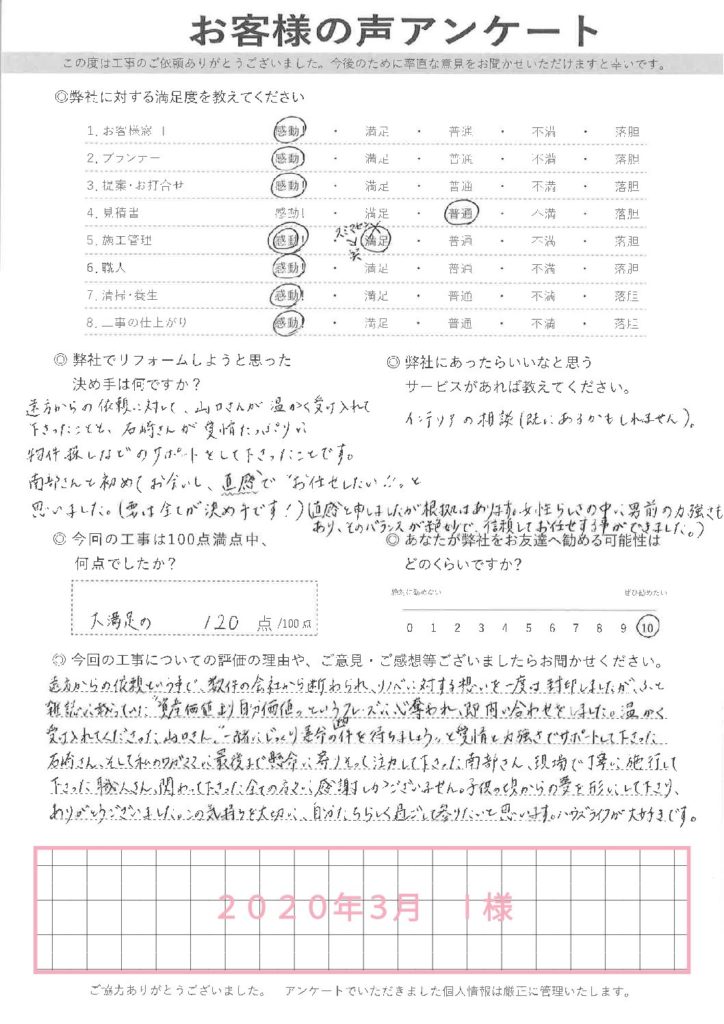 お客様の声アンケート
この度は工事のご依頼ありがとうございました。今後のために率直な意見をお聞かせいただけますと幸いです。
◎弊社に対する満足度を教えてください
1. お客様窓口 感動! ・ 満足 ・ 普通 ・ 不満 ・ 落胆
2. プランナー 感動! ・ 満足 ・ 普通 ・ 不満 ・ 落胆
3. 提案・お打合せ 感動! ・ 満足 ・ 普通 ・ 不満 ・ 落胆
4. 見積書 感動! ・ 満足 ・ 普通 ・ 不満 ・ 落胆
スミマセン
5. 施工管理 感動! ・ 満足 ・ 普通 ・ 不満 ・ 落胆
6. 職人 感動! ・ 満足 ・ 普通 ・ 不満 ・ 落胆
7. 清掃・養生 感動! ・ 満足 ・ 普通 ・ 不満 ・ 落胆
8. 工事の仕上がり 感動! ・ 満足 ・ 普通 ・ 不満 ・ 落胆
◎ 弊社でリフォームしようと思った
決め手は何ですか?
遠方からの依頼に対して、山口さんが温かく受け入れて
下さったことと、石崎さんが愛情たっぷりに
物件探しなどのサポートをして下さったことです。
南部さんと初めてお会いし、直感で"お任せしたい!!"と
思いました。(要は全てが決め手です!)(直感と申しましたが根拠はあります。女性らしさの中に男前の力強さも
あり、そのバランスが絶妙で、信頼してお任せする事ができました。)
◎ 弊社にあったらいいなと思う
サービスがあれば教えてください。
インテリアの相談(既にあるかもしれません)。
◎ 今回の工事は100点満点中、
何点でしたか?
大満足の 120 点 /100点
◎ あなたが弊社をお友達へ勧める可能性は
どのくらいですか?
絶対に勧めない ぜひ勧めたい
0 1 2 3 4 5 6 7 8 9 10
◎ 今回の工事についての評価の理由や、ご意見・ご感想等ございましたらお聞かせください。
遠方からの依頼という事で、数件の会社から断わられ、リノベに対する想いを一度は封印しましたが、ふと
雑誌に載っていた"資産価値より自分価値"というフレーズに心奪われ、即問い合わせをしました。温かく
受け入れてくださった山口さん、"一緒にじっくり運命の物件を待ちましょう"と愛情と力強さでサポートして下さった
石崎さん、そして私のワガママに最後まで懸命に寄りそって注力して下さった南部さん、現場で丁寧に施行して
下さった職人さん、関わって下さった全ての方々に感謝しかございません。子供の頃からの夢を形にして下さり、
ありがとうございました。この気持ちを大切に、自分たちらしく過ごして参りたいと思います。ハウズライフが大好きです。
2020年3月 I様
ご協力ありがとうございました。 アンケートでいただきました個人情報は厳正に管理いたします。